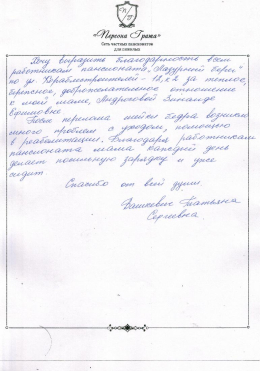 «Персона Грата»
Сеть частных пансионатов
для пожилых
Хочу выразить благодарность всем
работникам пансионата „Лазурный берег"
по ул. Кораблестроителей - 12, к2 за теплое,
бережное, доброжелательное отношение
к моей маме, Андросовой Зинаиде
Ефимовне.
После перелома шейки бедра возникло
много проблем с уходом, помощью
в реабилитации. Благодаря работникам
пансионата мама каждый день
делает посильную зарядку и уже
сидит.
Спасибо от всей души.
Вашкевич Татьяна
Сергеевна.